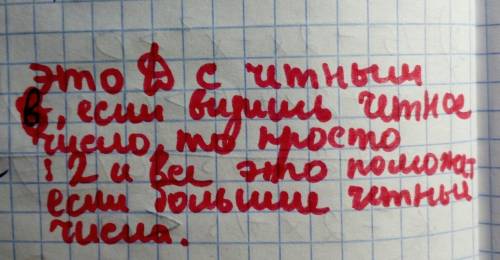 это D с чётным
В, если видишь четное
число, то просто
: 2 и все это поможат
если большие четные
числа.